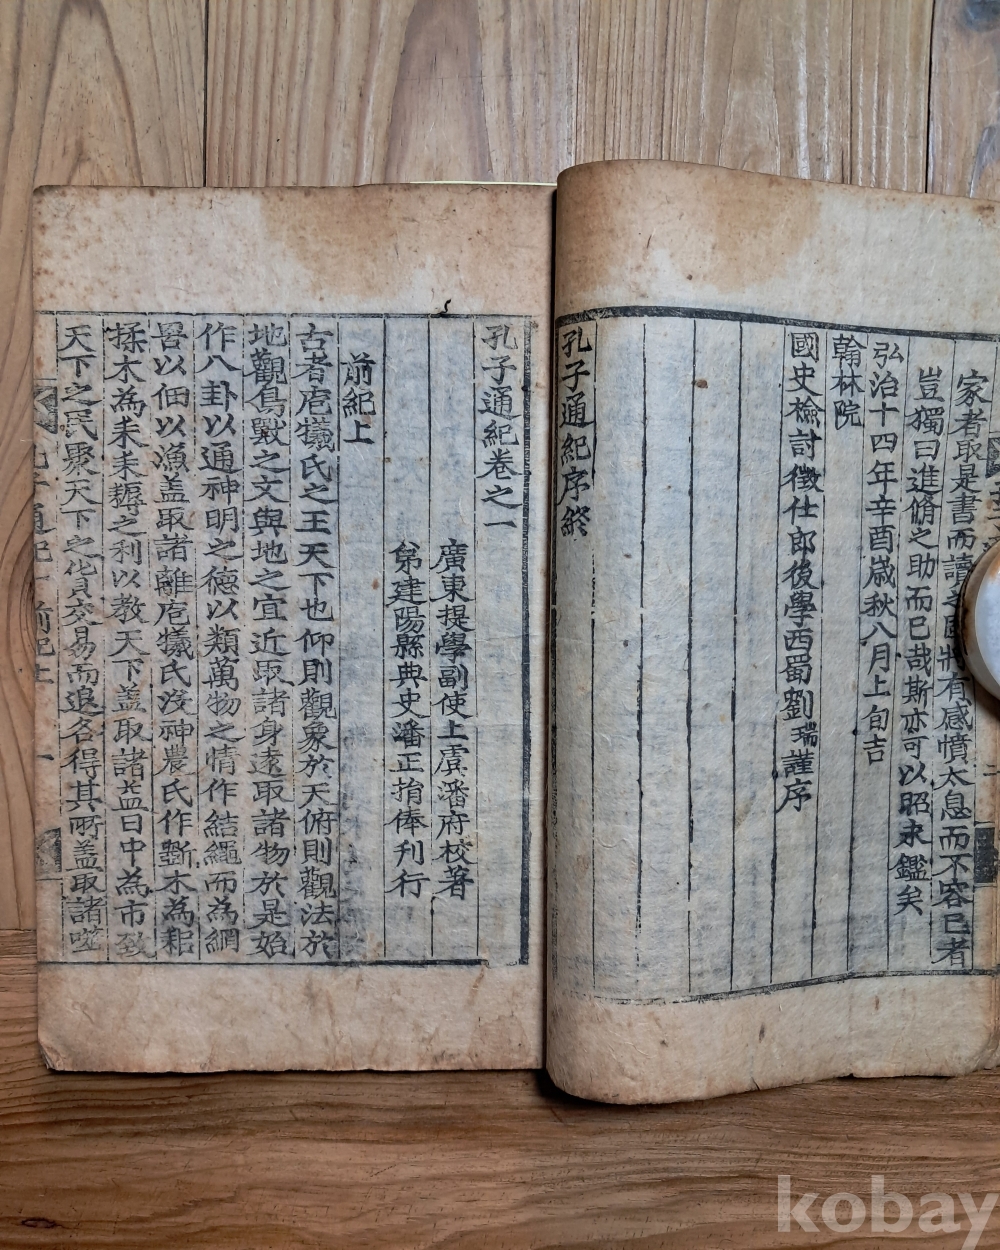 家者取是書而讀之國將有感憤太息而不容已者
豈獨曰進脩之助而已哉斯亦可以昭求鑑矣
弘治十四年辛酉歲秋八月上旬吉
翰林院
國史檢討徵仕郎後學西蜀劉瑞謹序
孔子通紀序終
孔子通紀卷之一
廣東提學副使上虞潘府校著
弟建陽縣典史潘正捐俸刊行
前紀上
古者庖犧氏之王天下也仰則觀象於天俯則觀法於
地觀鳥獸之文與地之宜近取諸身遠取諸物於是始
作八卦以通神明之德以類萬物之情作結繩而為網
罟以佃以漁蓋取諸離庖犧氏沒神農氏作斲木為耜
揉木為耒耒耨之利以教天下蓋取諸益日中為市致
天下之民聚天下之貨交易而退各得其所蓋取諸噬
通紀 前紀上 一
kobay